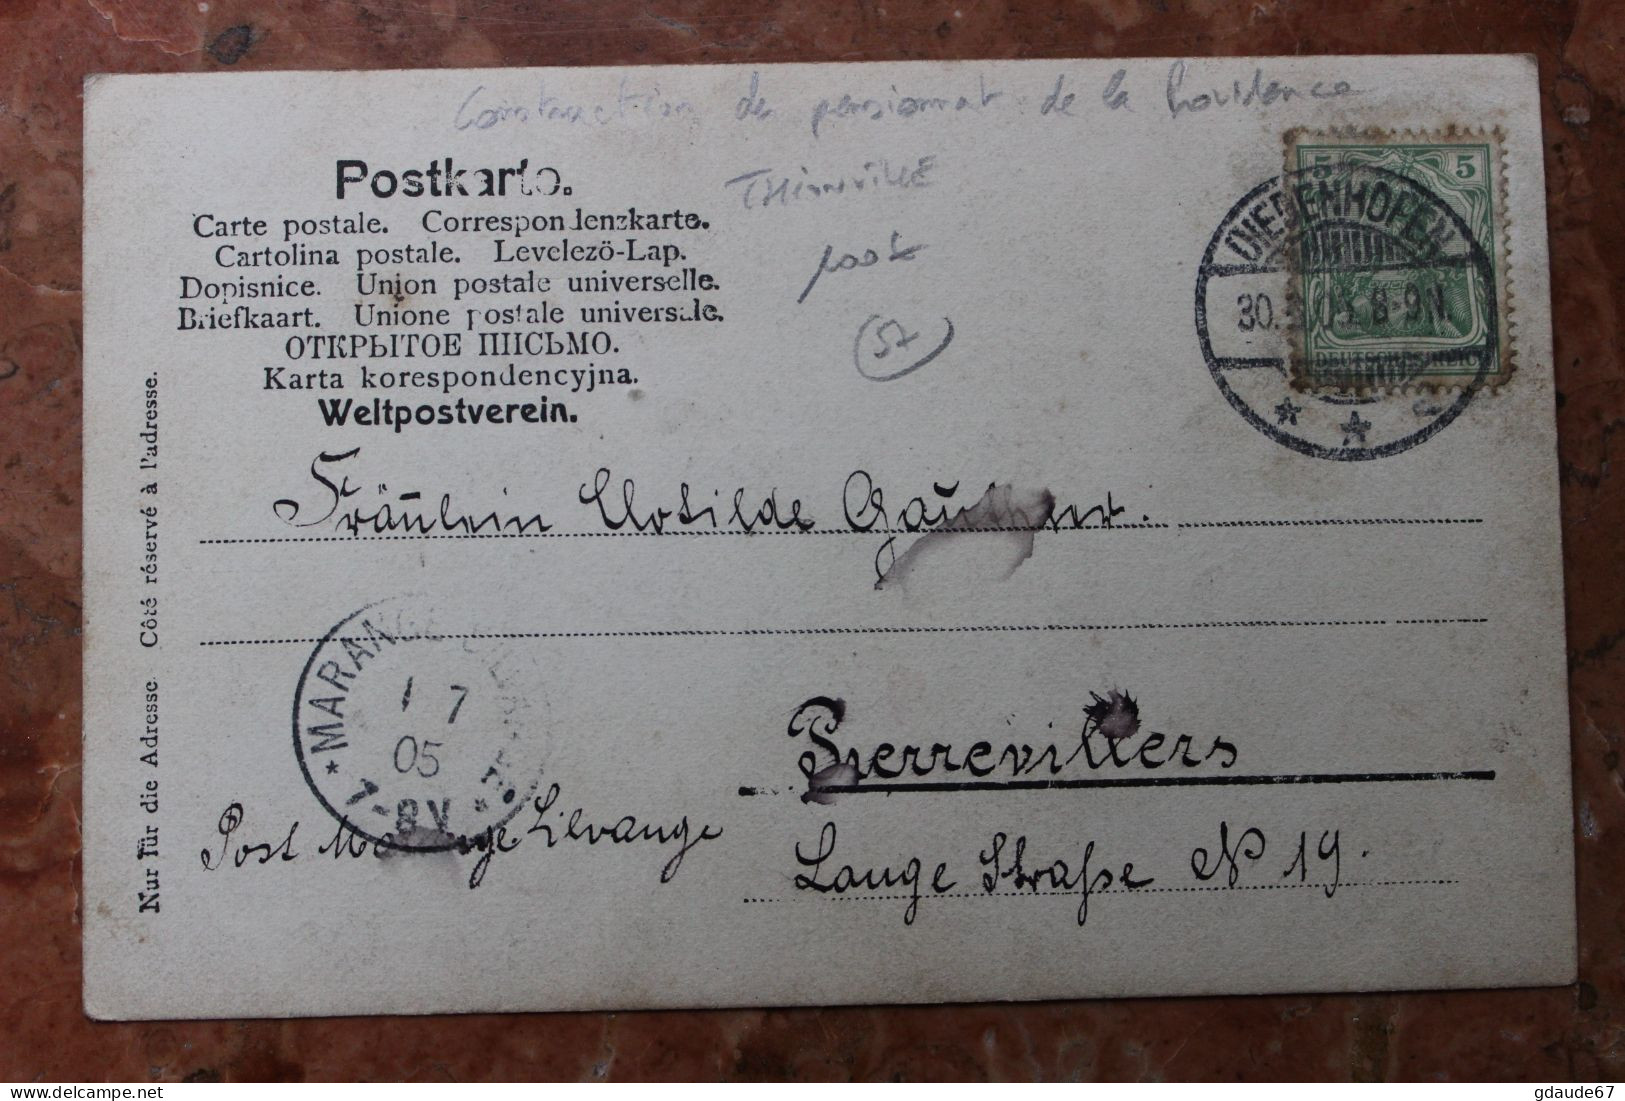 Construction du pensionnat de la Providence
THIONVILLE
57
Postkarte.
Carte postale. Correspondenzkarte.
Cartolina postale. Levelező-Lap.
Dopisnice. Union postale universelle.
Briefkaart. Unione postale universale.
ОТКРЫТОЕ ПИСЬМО.
Karta korespondencyjna.
Weltpostverein.
Nur für die Adresse. Côté réservé à l'adresse.
5 5
DEUTSCHES REICH
DIEDENHOFEN
30. 05. 8-9 N.
Fräulein Clotilde Gauthier.
* MARANGE
1 7
05
7-8 V. *
Pierrevillers
Post Marange Silvange
Lange Straße No 19.
gdaude67